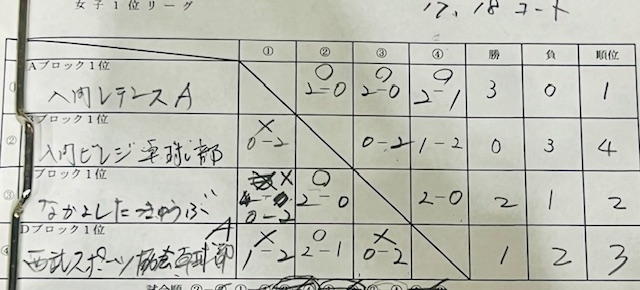 女子1位リーグ
17、18コート
① ② ③ ④ 勝 負 順位
① Aブロック1位
入間レディースA ○ 2-0 ○ 2-0 ○ 2-1 3 0 1
② ブロック1位
入間ビレジ卓球部 × 0-2 0-2 1-2 0 3 4
③ ブロック1位
なかよしたっきゅうぶ × 0-2 ○ 2-0 2-0 2 1 2
④ Dブロック1位
西武スポーツ 卓球部A × 1-2 ○ 2-1 × 0-2 1 2 3
試合順